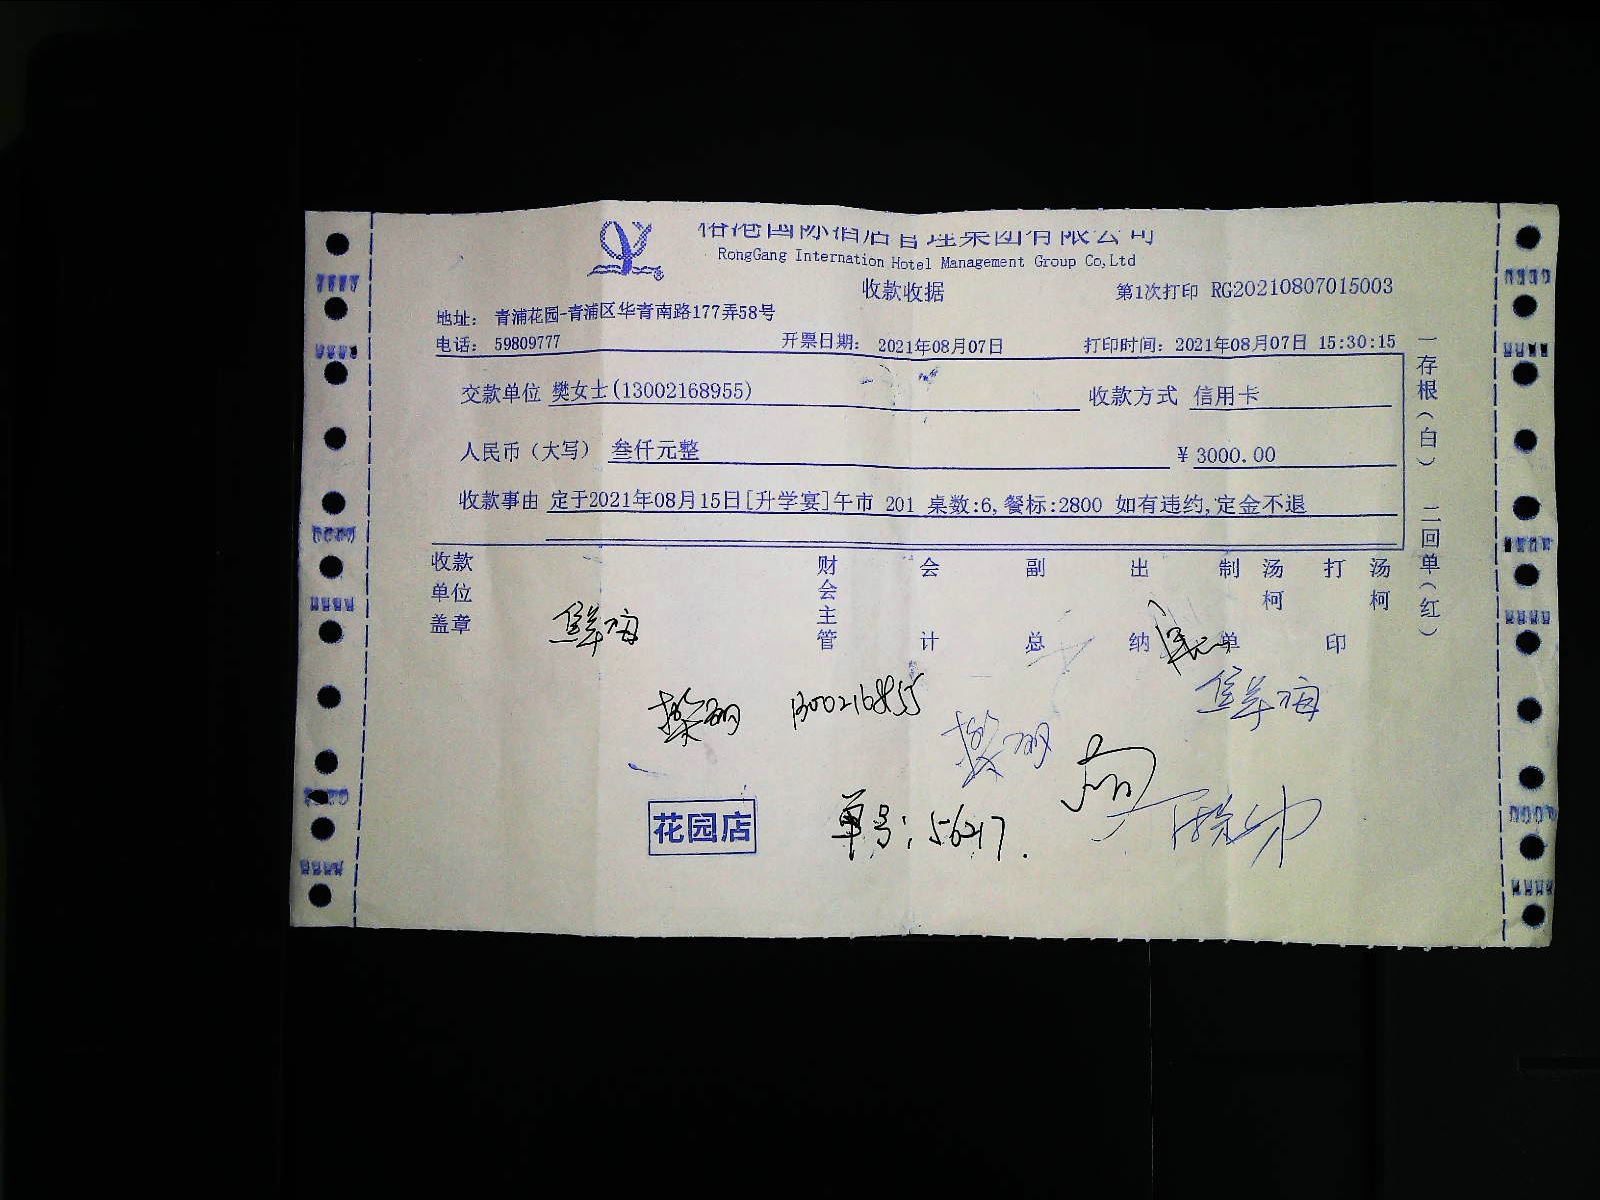 国际酒店管理集团有限公司
RongGang Internation Hotel Management Group Co,Ltd
收款收据
第1次打印 RG20210807015003
地址： 青浦花园-青浦区华青南路177弄58号
电话： 59809777 开票日期： 2021年08月07日 打印时间：2021年08月07日 15:30:15
交款单位 樊女士(13002168955) 收款方式 信用卡
人民币（大写） 叁仟元整 ￥3000.00
收款事由 定于2021年08月15日[升学宴]午市 201 桌数:6,餐标:2800 如有违约,定金不退
收款单位盖章 财会主管 会计 副总 出纳 制单 汤柯 打印 汤柯
一存根（白） 二回单（红）
花园店
单号：56217.